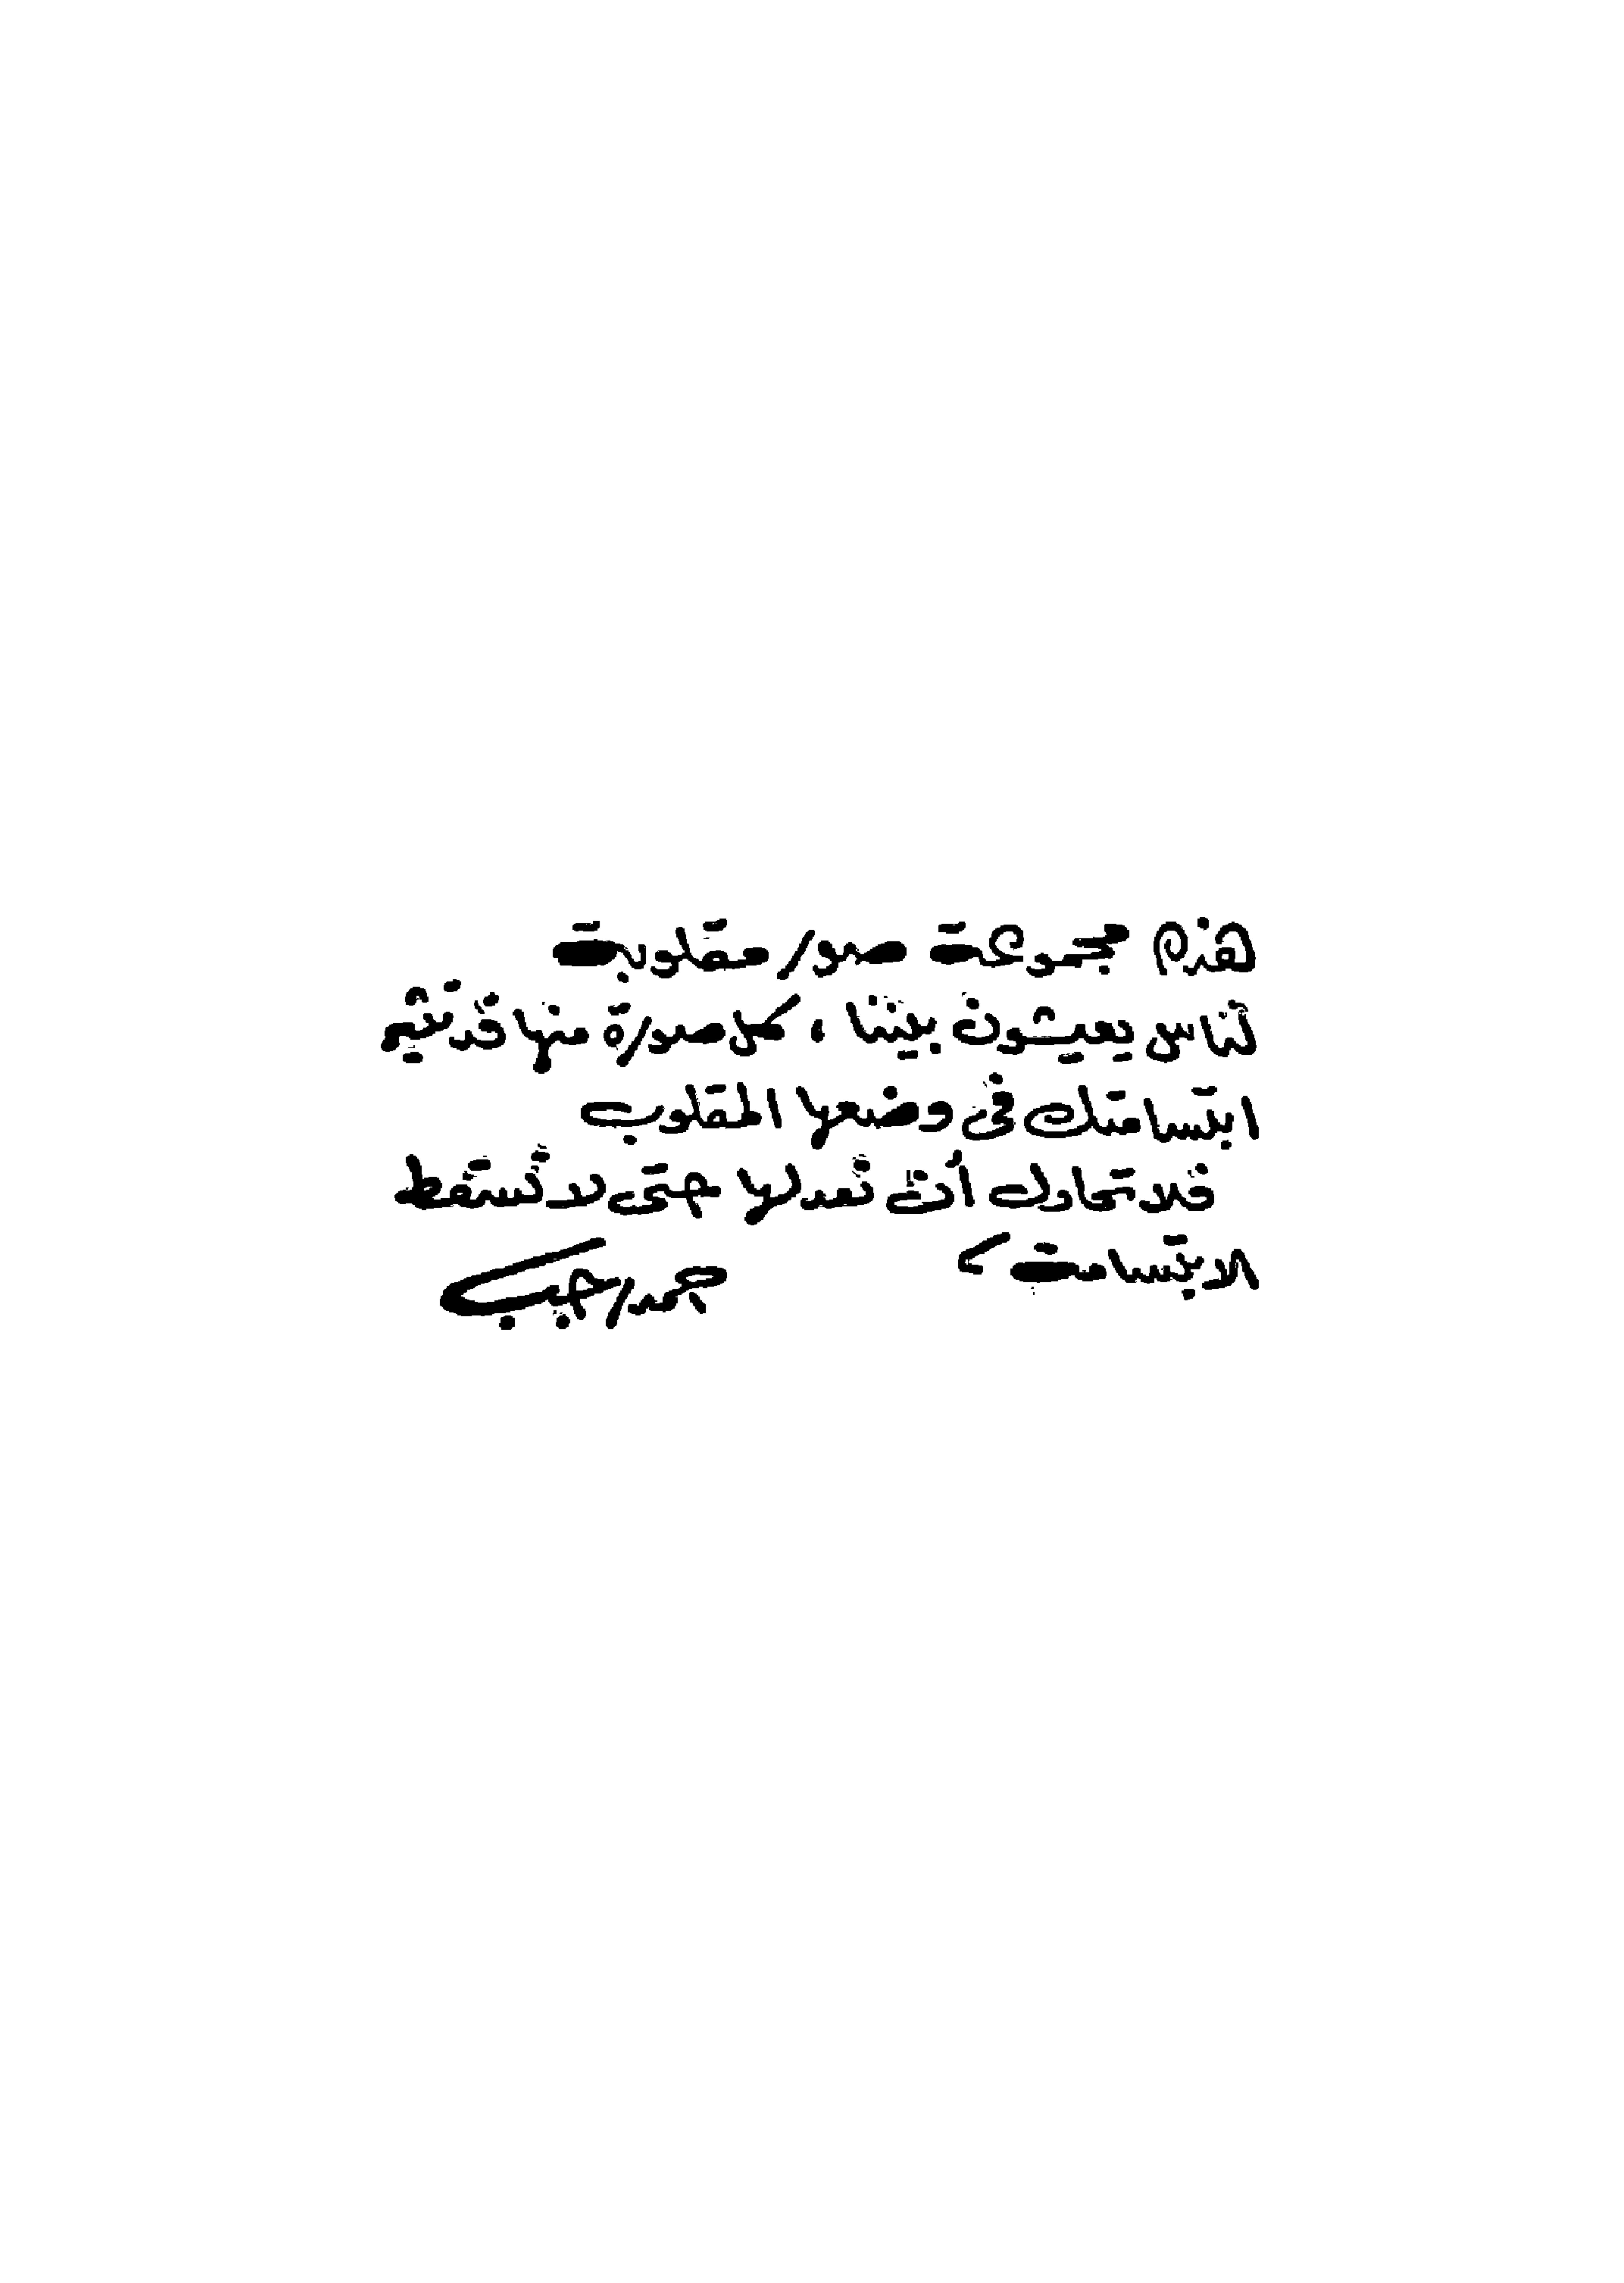 هذه مجموعة صور مقلوبة
لناس يعيشون بيننا ، كل صورة منها قد تثير
ابتسامتك فى وضعها المقلوب
فلا تحاول أن تعدلها حتى لا تسقط
الابتسامة ،
أحمد رجب